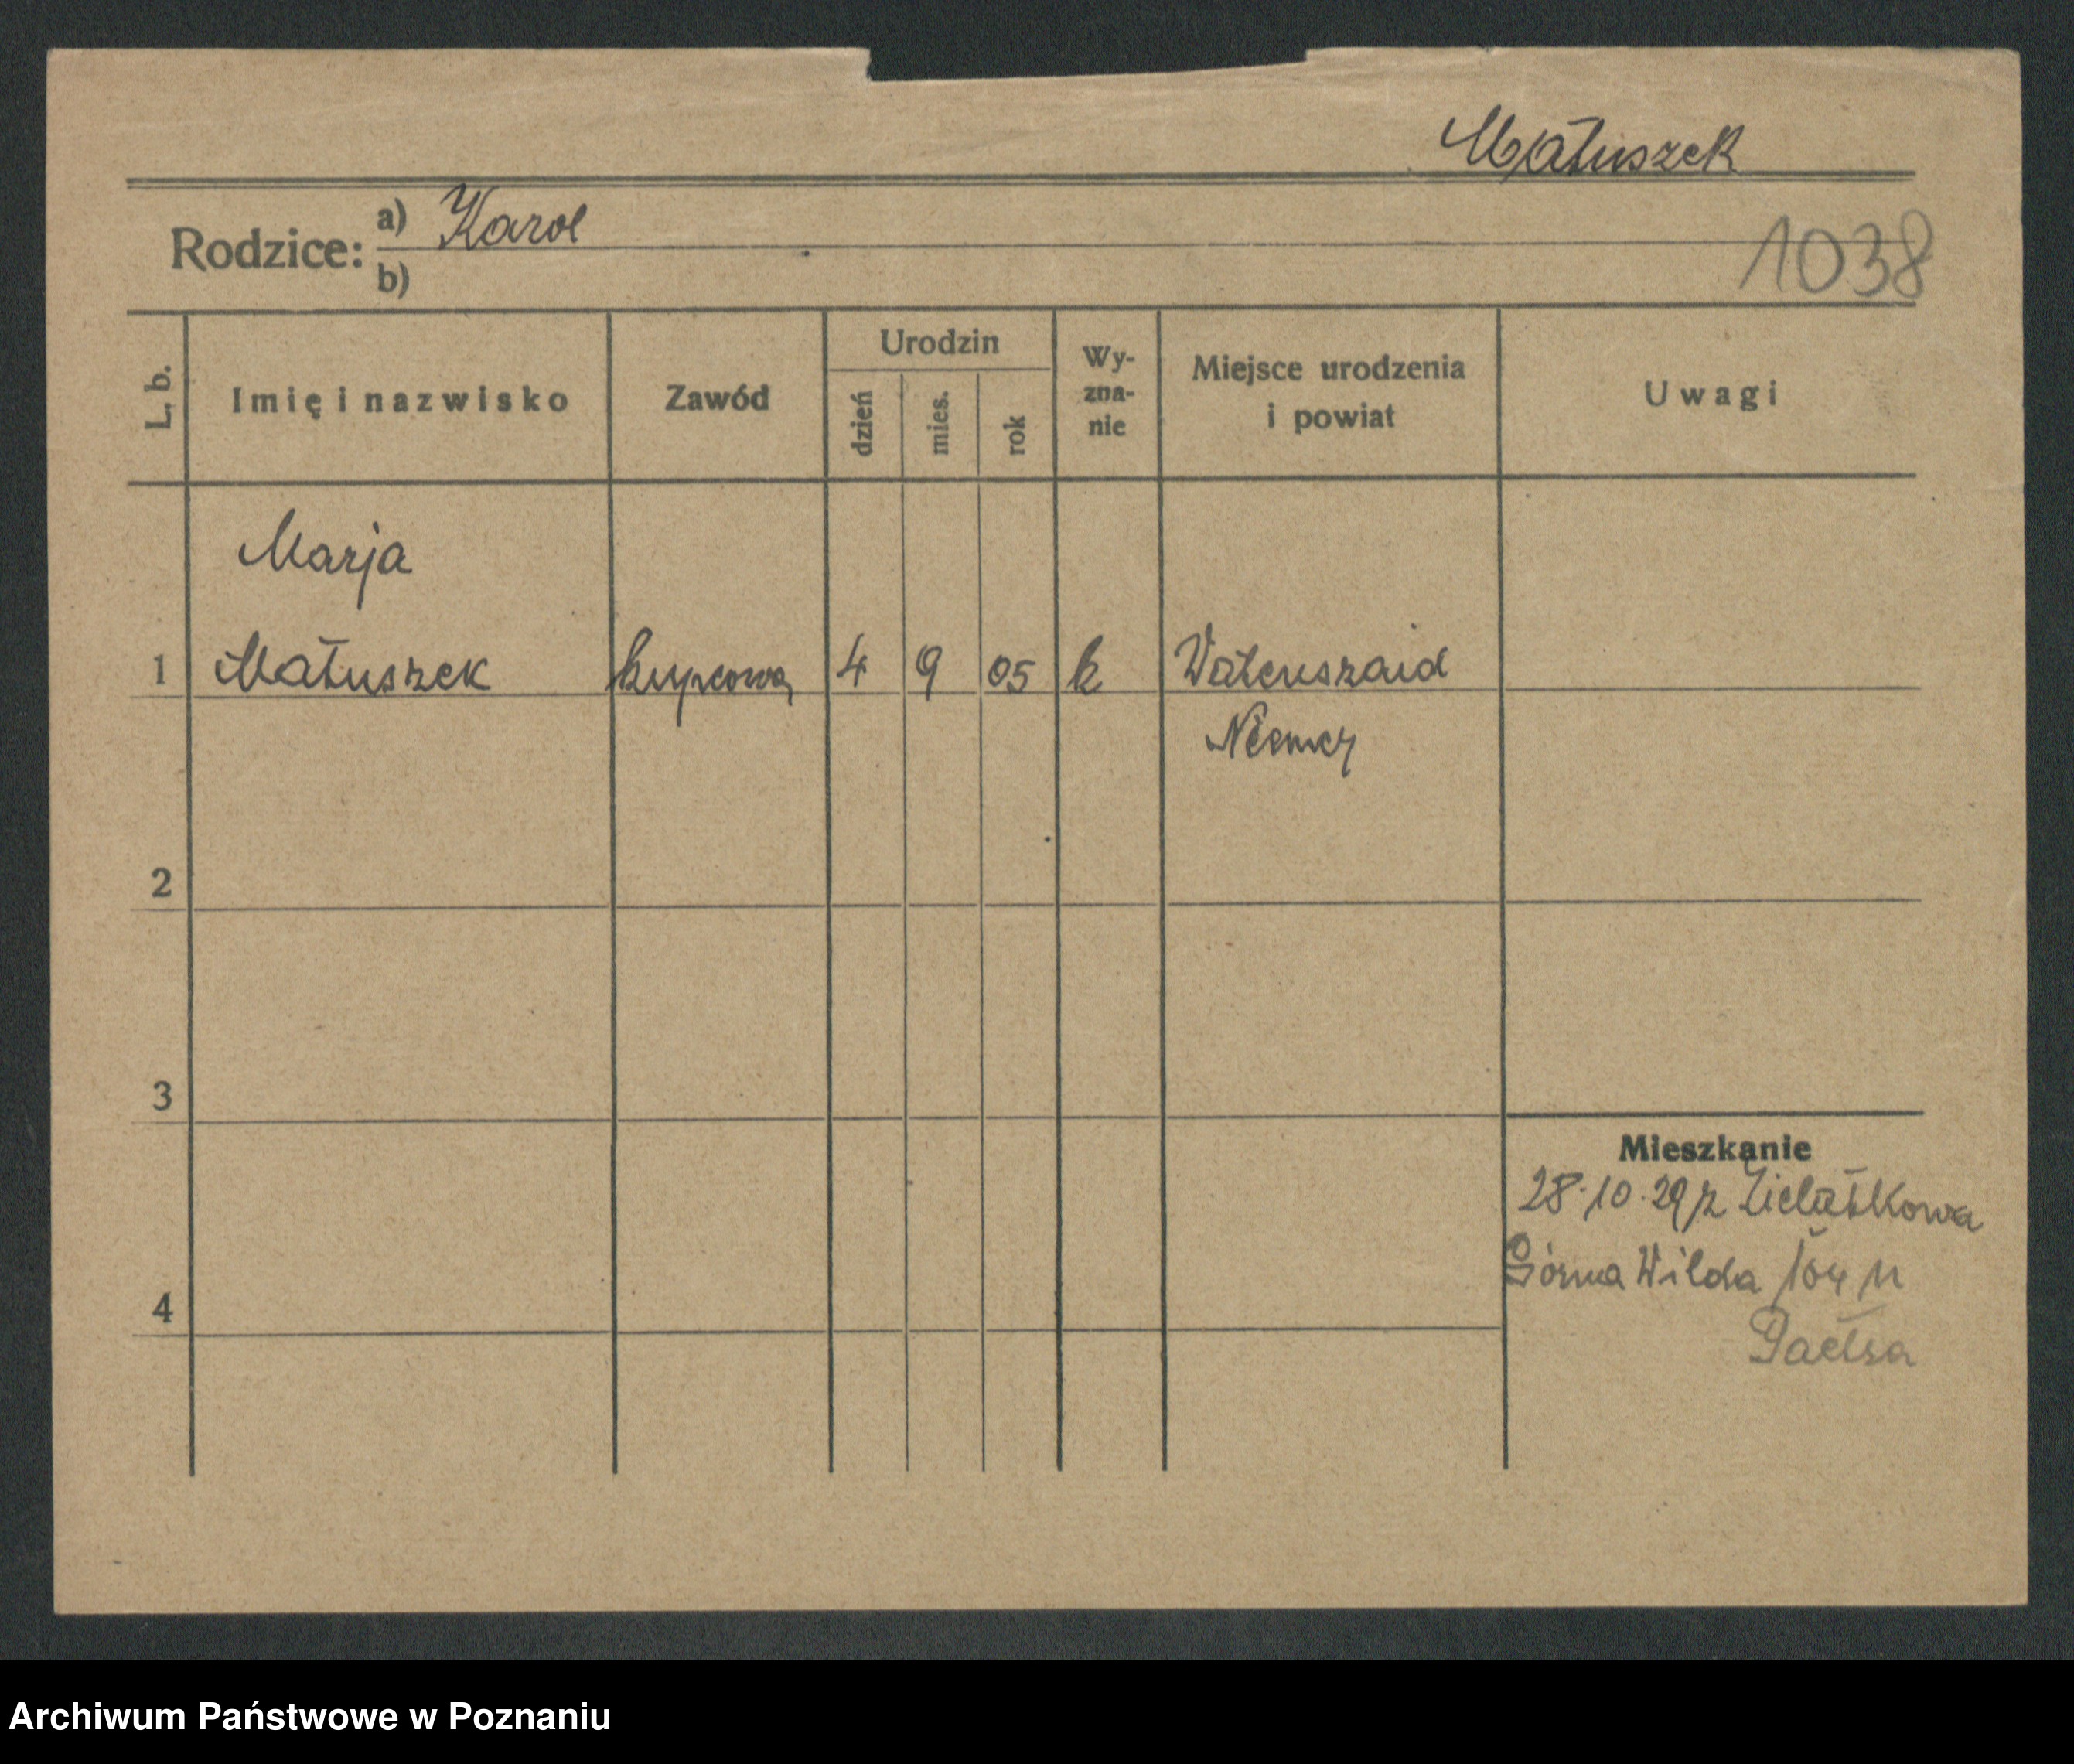 Matuszek
Rodzice: a) Karol
b)
1038
L. b.
Imię i nazwisko
Zawód
Urodzin
dzień
mies.
rok
Wy-
zna-
nie
Miejsce urodzenia
i powiat
Uwagi
Marja
1 Matuszek kupcowa 4 9 05 k Watenszaid
Niemcy
2
3
4
Mieszkanie
28.10.29 z Zielątkowa
Górna Wilda 104
Archiwum Państwowe w Poznaniu